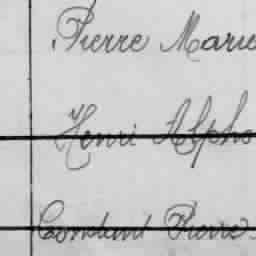 Pierre Marie
Henri Alpho
Constant Pierre